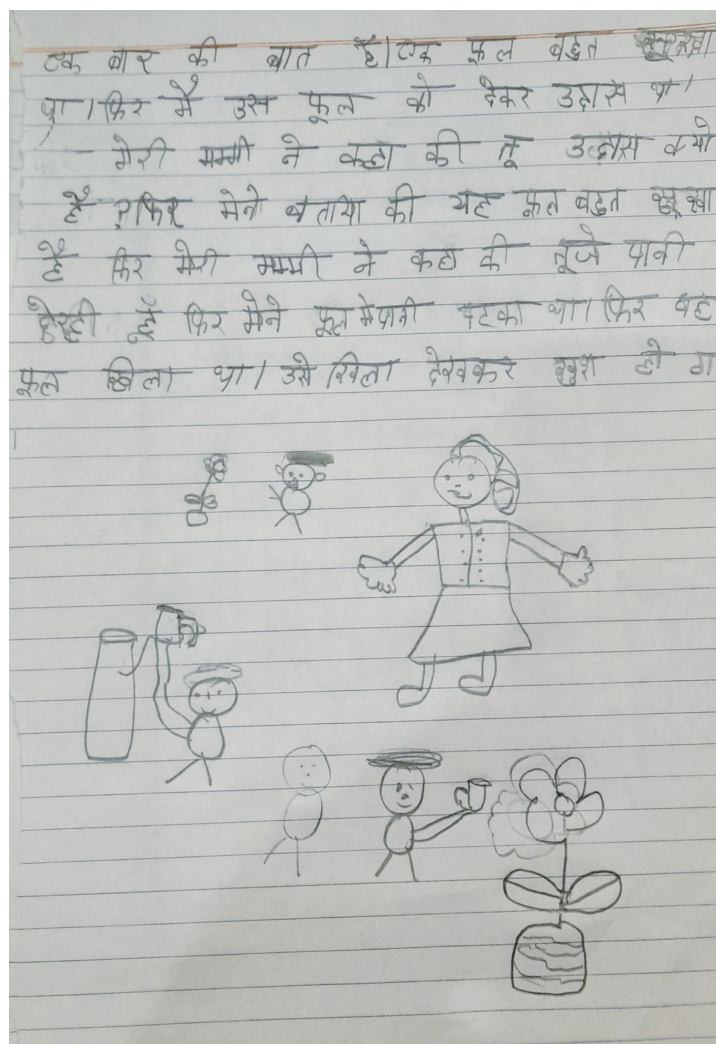 एक बार की बात है। एक फूल बहुत सूखा
था। फिर मै उस फूल को देकर उदास था।
मेरी मम्मी ने कहा की तू उदास क्यो
है फिर मेने बताया की यह फूल बहुत सूखा
है फिर मेरी मम्मी ने कहा की तूजे पानी
हूँ फिर मेने फूल मे पानी पटका था। फिर वह
फूल खिला था। उसे खिला देखकर खुश हो ग